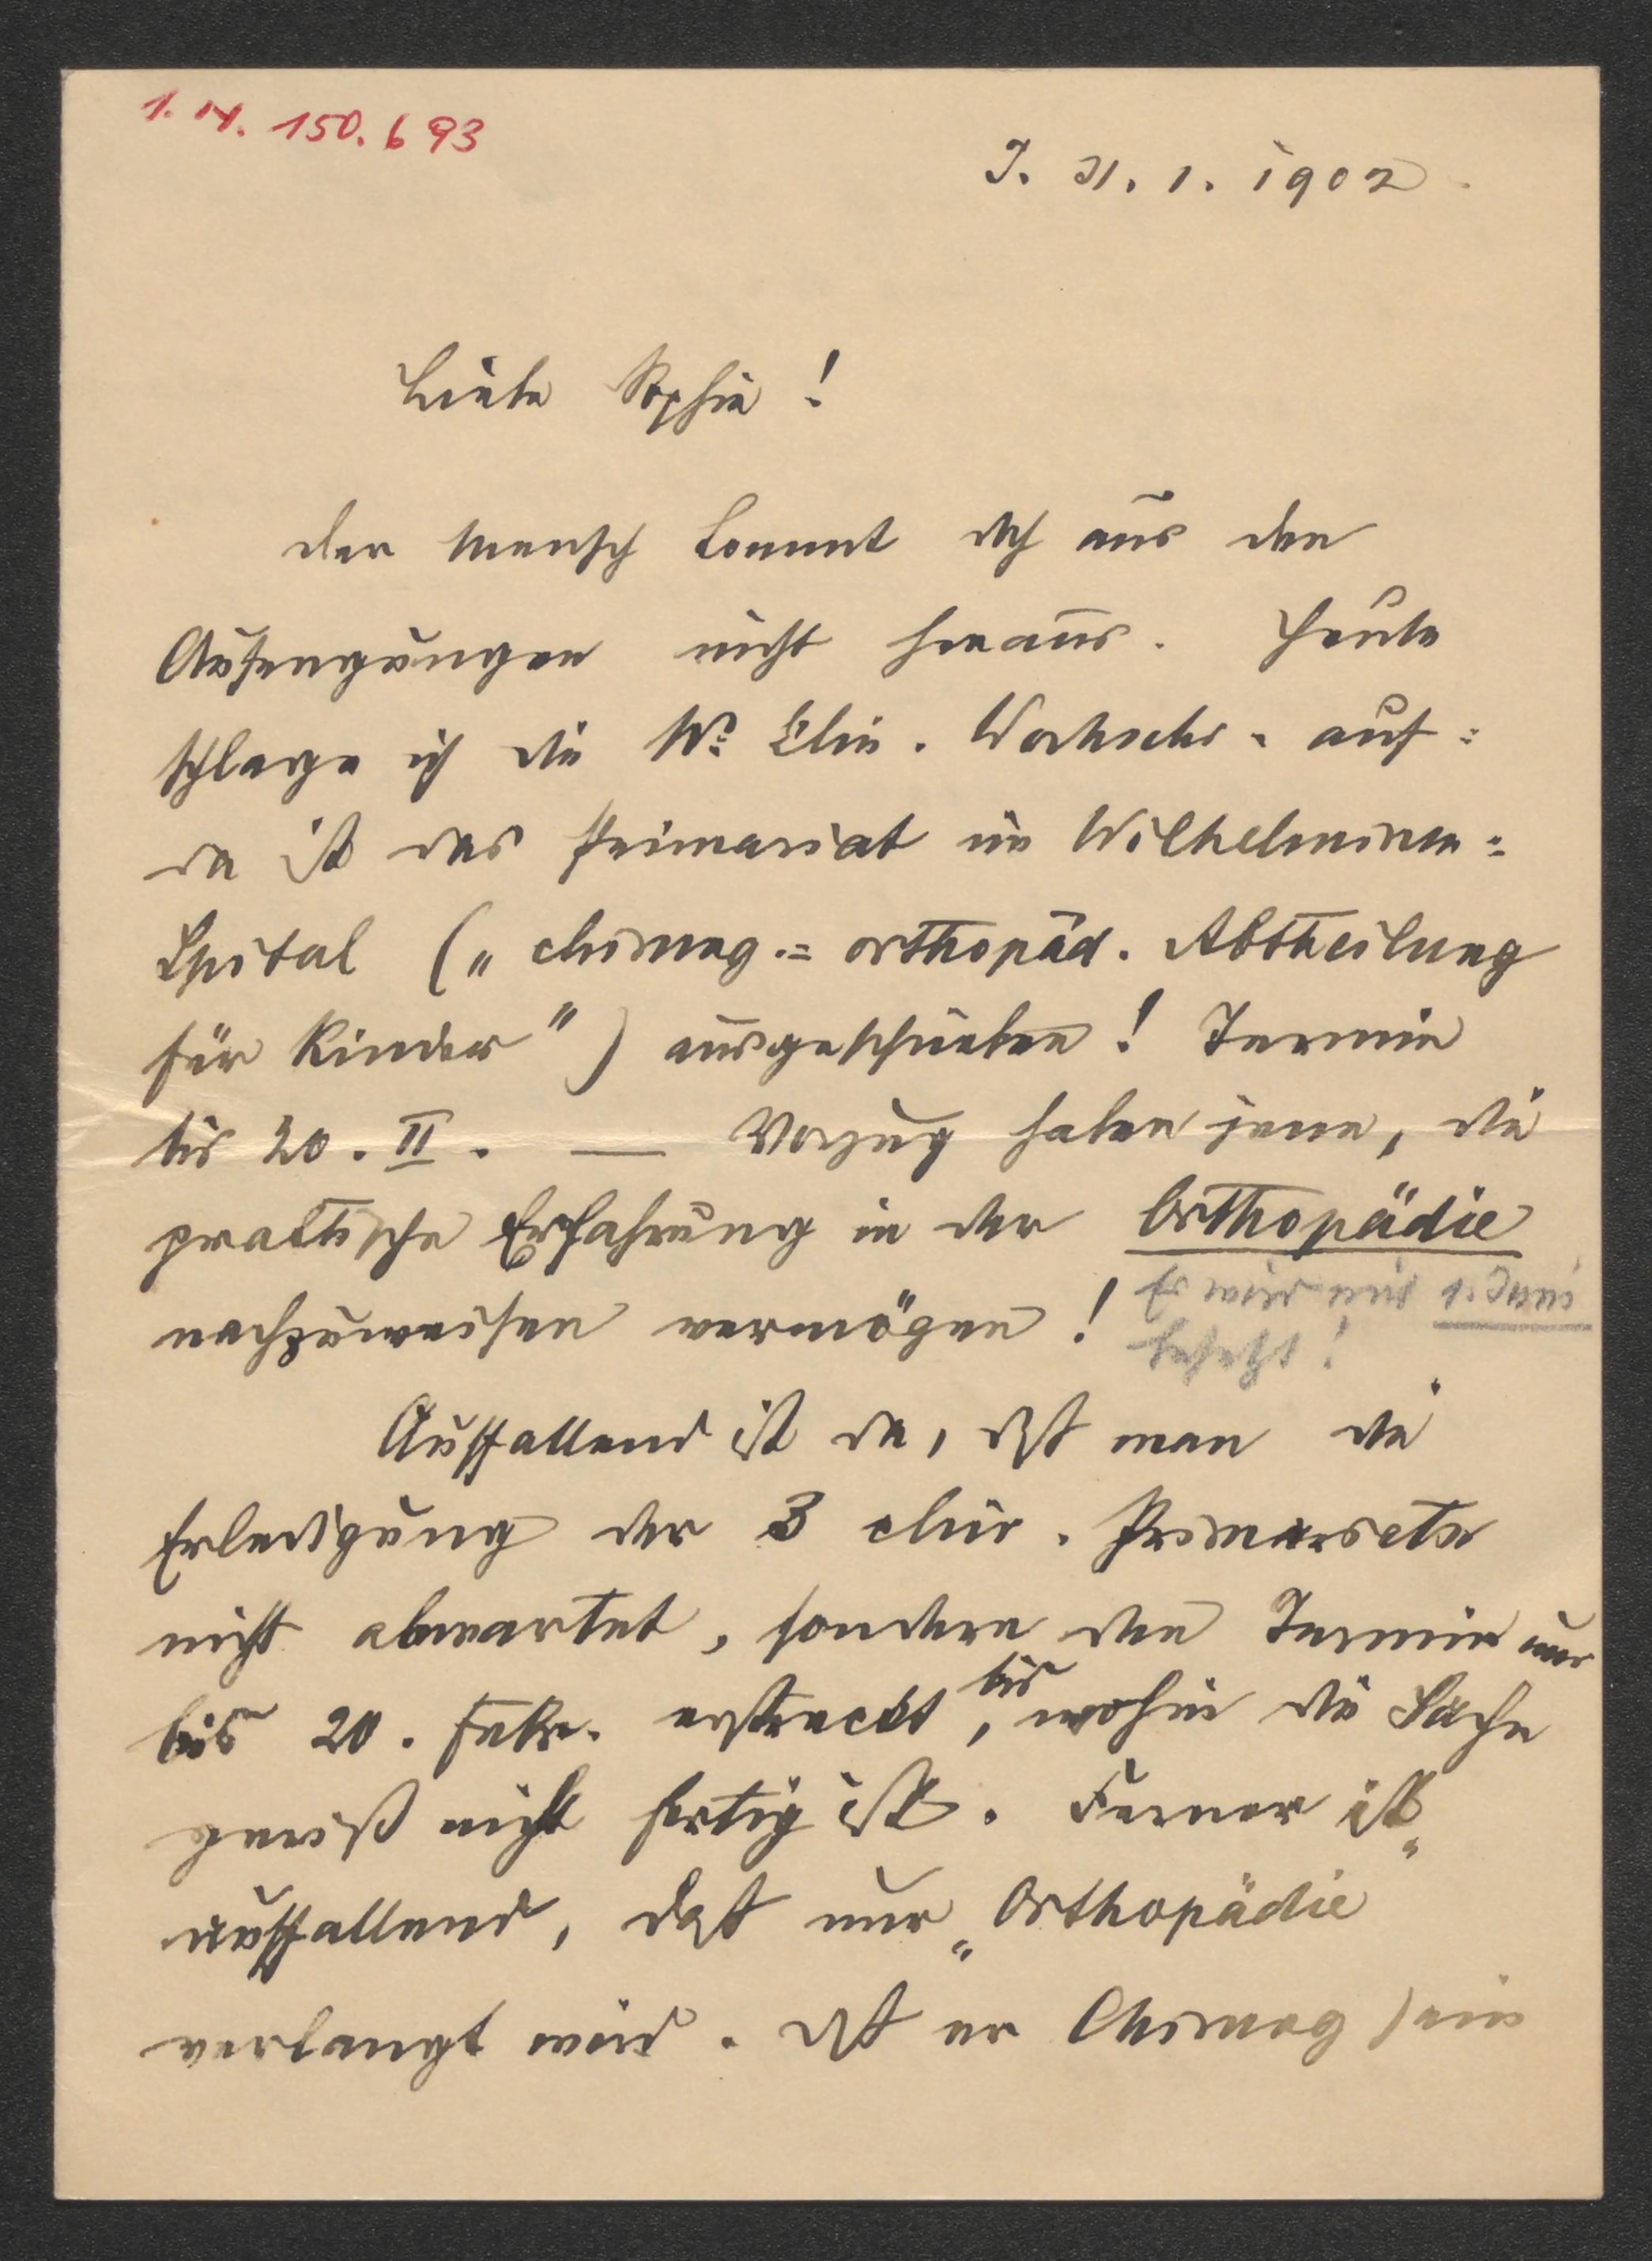 1. IX. 150.693
I. 31. 1. 1902.
Liebe Sophie!
der Mensch kommt doch aus den
Aufregungen nicht heraus. Heute
schlage ich die Wr klin. Wochschr. auf:
da ist das Primariat im Wilhelminen=
Spital („chirurg.= orthopäd. Abtheilung
für Kinder") ausgeschrieben! Termin
bis 20. II. — Vorzug haben jene, die
praktische Erfahrung in der Orthopädie
nachzuweisen vermögen!
Auffallend ist da, dass man die
Erledigung der 3 chir. Primariate
nicht abwartet, sondern den Termin nur
bis 20. Febr. erstreckt, bis wohin die Sache
gewiß nicht fertig ist. Ferner ist
auffallend, dass nur „Orthopädie"
verlangt wird. Dass er Chirurg sein